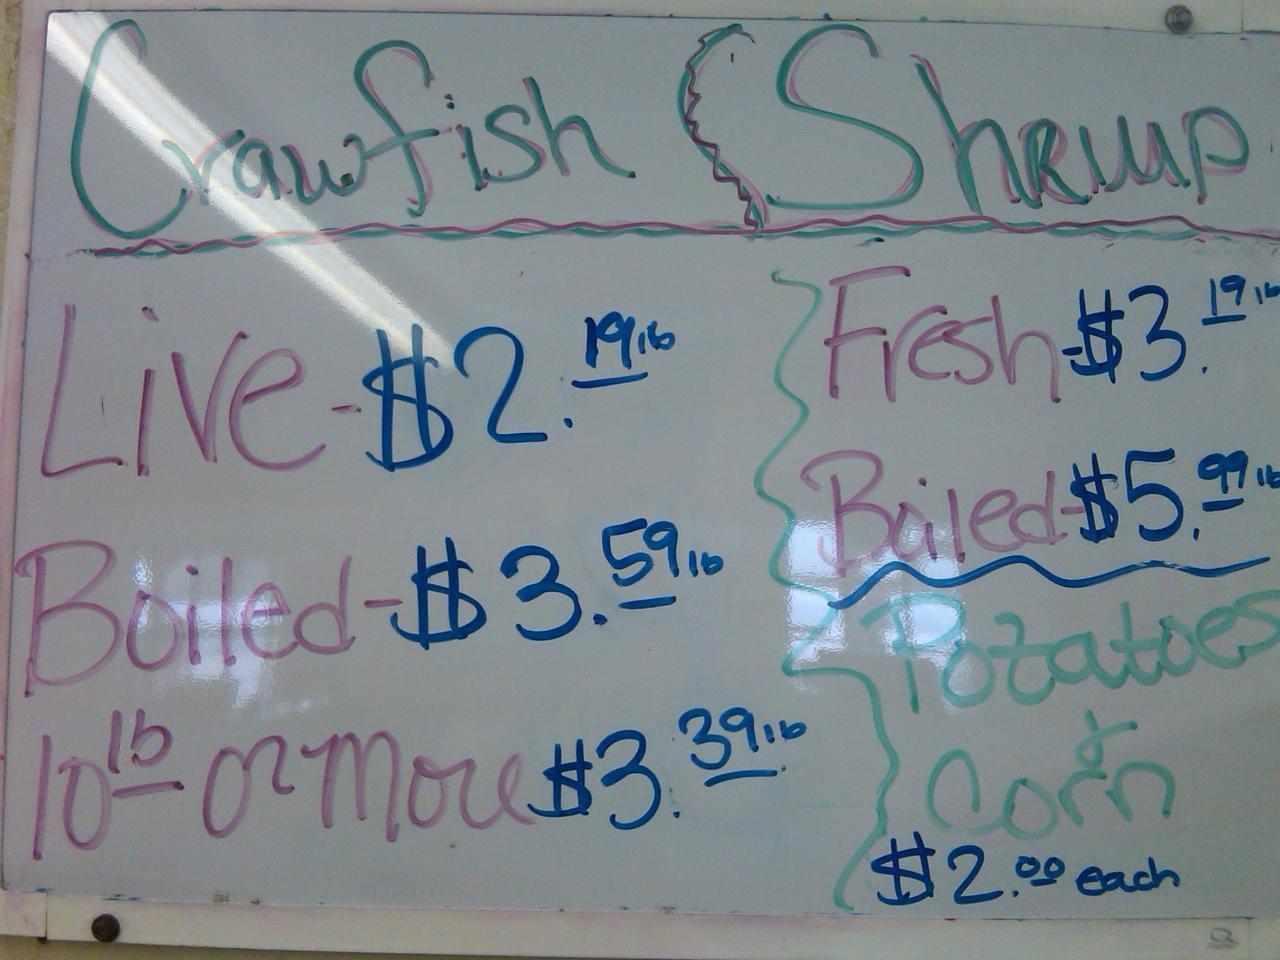 Crawfish
Live-$2.19 lb
Boiled-$3.59 lb
10 lb or more $3.39 lb
Shrimp
Fresh-$3.19 lb
Boiled-$5.99 lb
Potatoes
&
Corn
$2.00 each